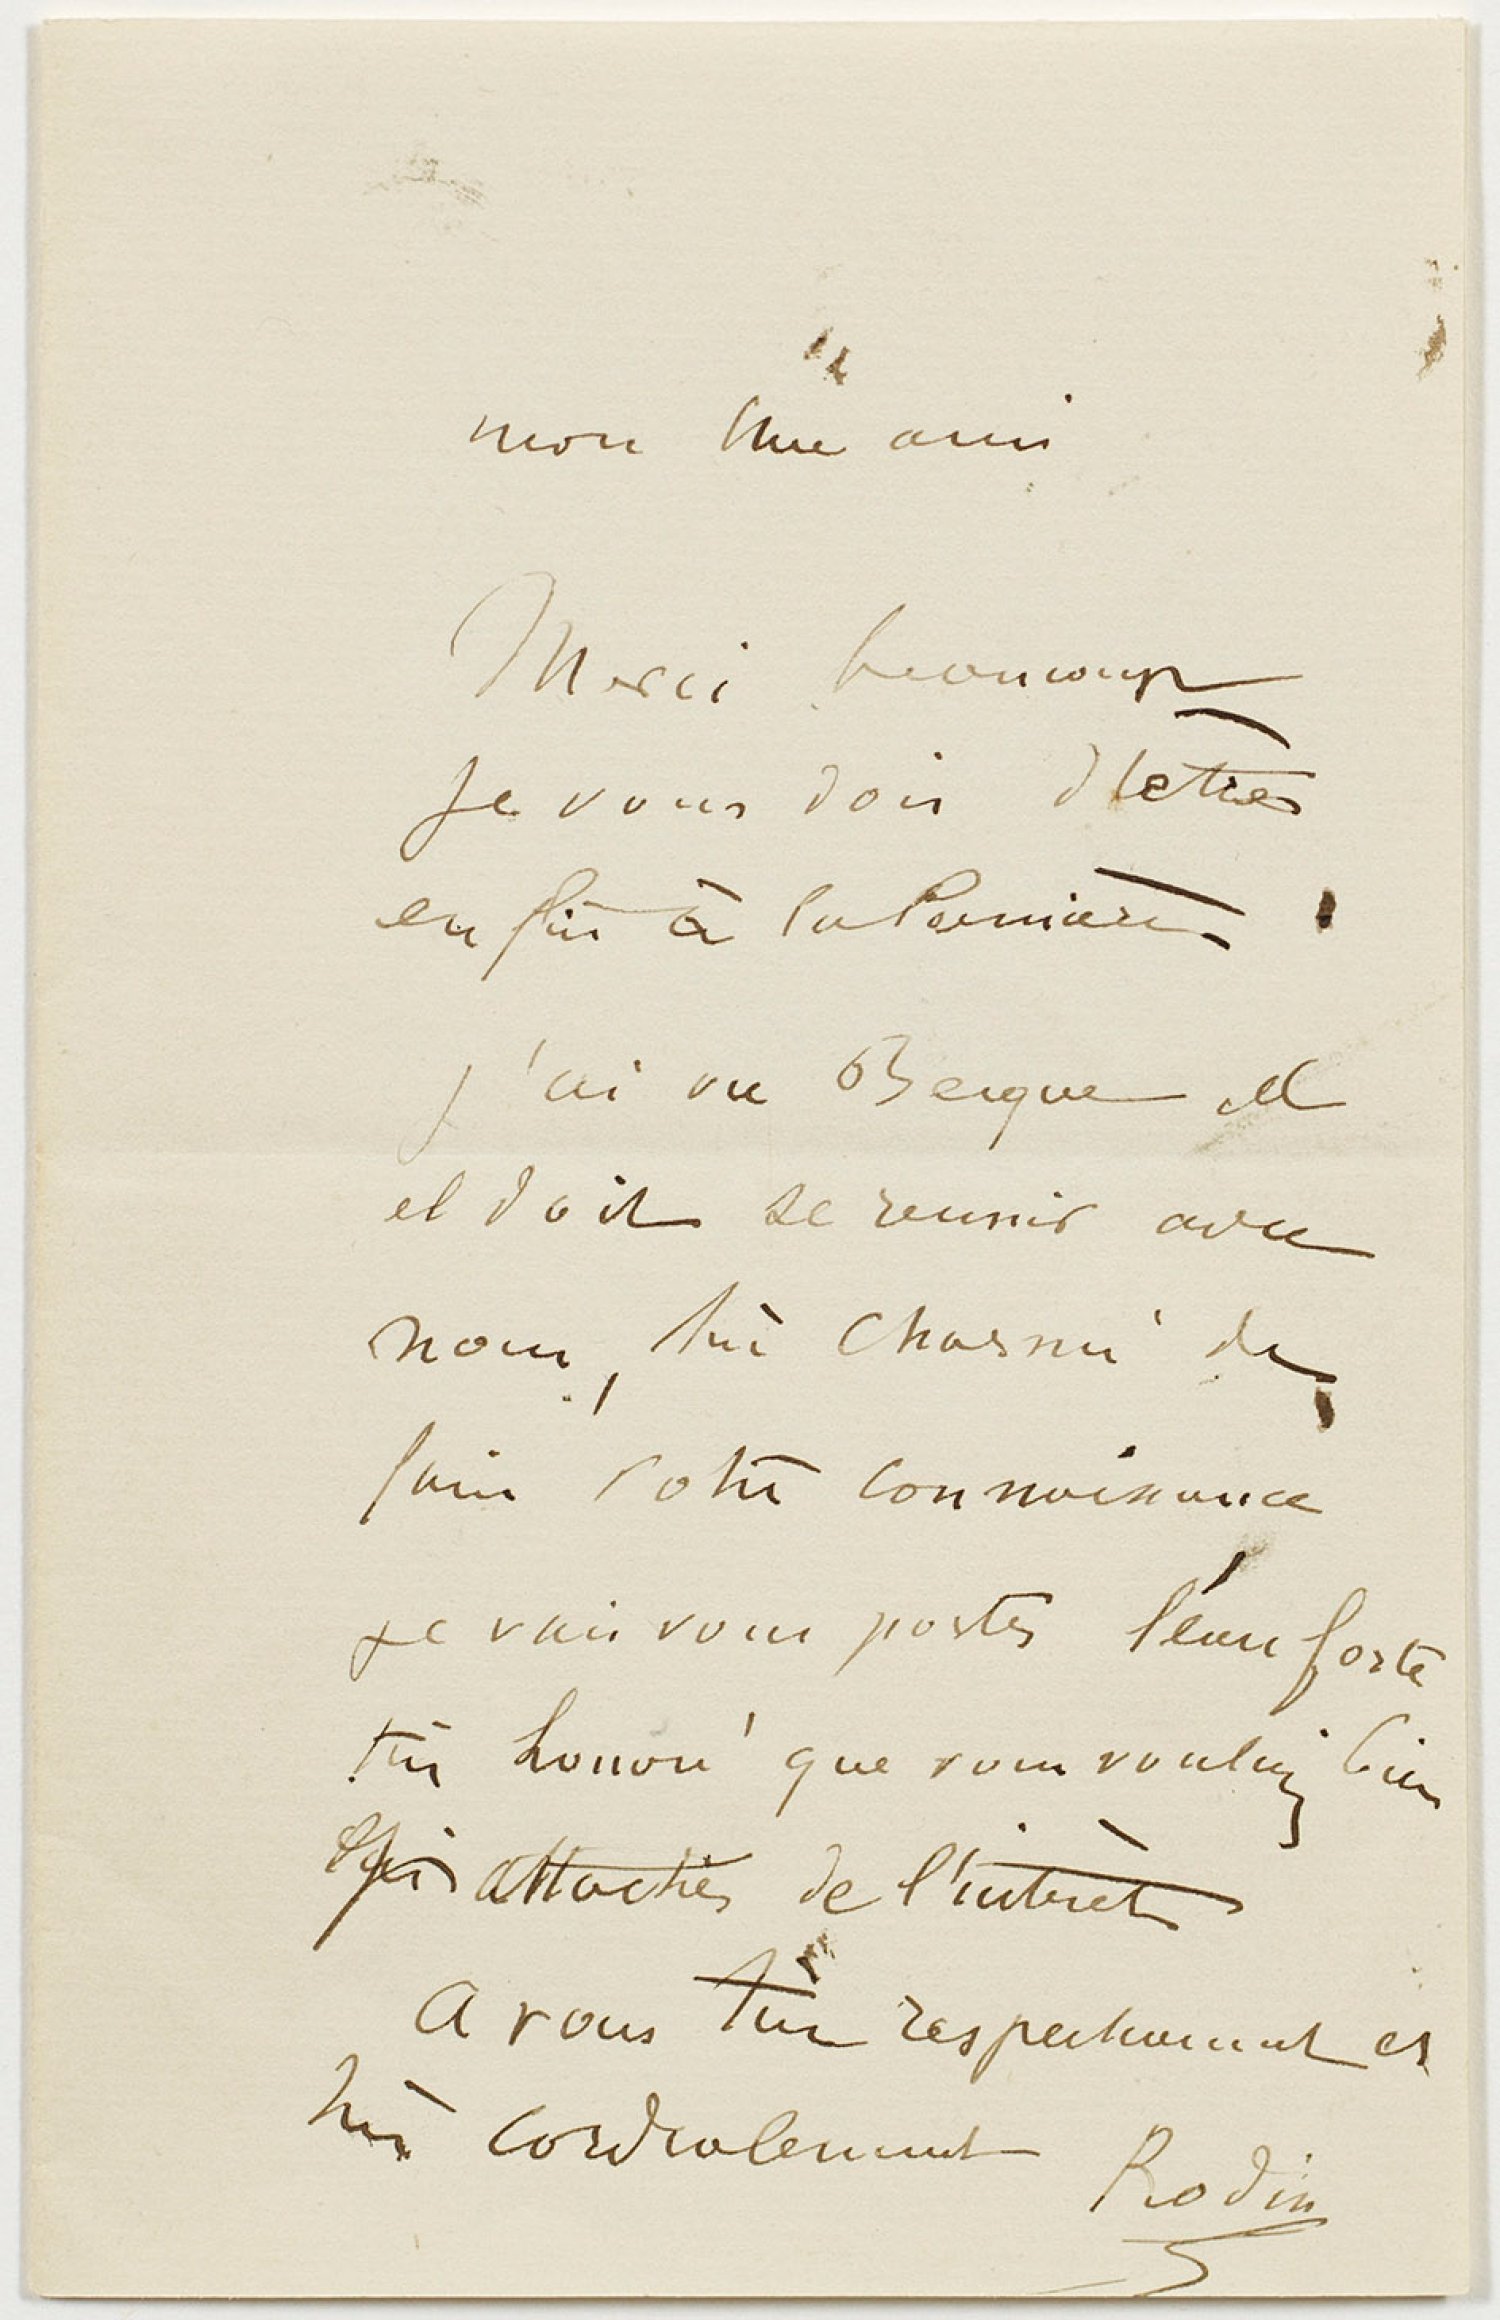 mon cher ami
Merci beaucoup
je vous dois d'être
enfin à la lumière
j'ai vu Bergue et
il doit se reunir avec
nous, très charmé de
faire votre connaissance
je vais vous porter l'eau forte
très honoré que vous vouliez bien
y attacher de l'intérêt
A vous très respectueusement et
très cordialement Rodin